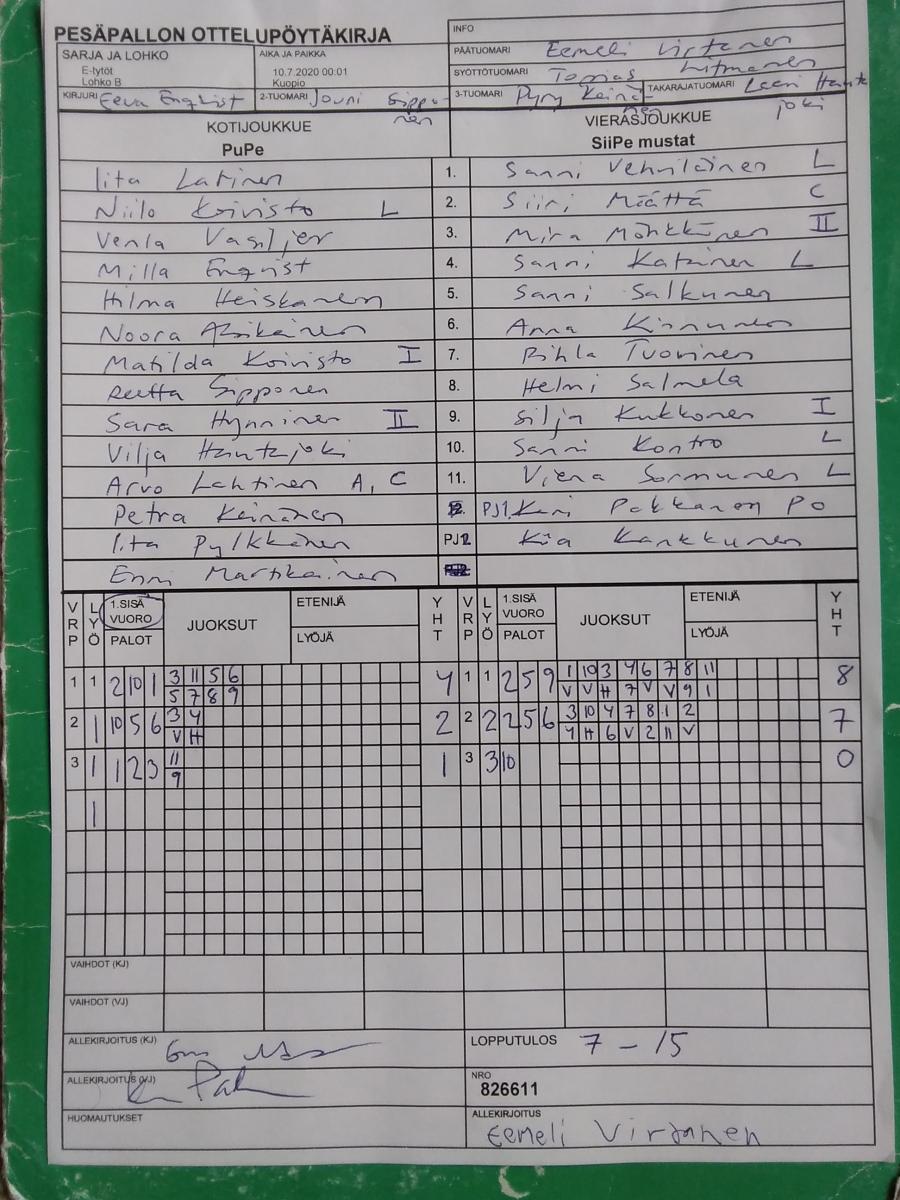 PESÄPALLON OTTELUPÖYTÄKIRJA
INFO
SARJA JA LOHKO
E-tytöt
Lohko B
AIKA JA PAIKKA
10.7.2020 00:01
Kuopio
PÄÄTUOMARI Eemeli Virtanen
SYÖTTÖTUOMARI Tomias Litmanen
KIRJURI Eeva Enqvist 2-TUOMARI Jouni Sipponen 3-TUOMARI Pyry Keinänen TAKARAJATUOMARI Leeni Hautajoki
KOTIJOUKKUE VIERASJOUKKUE
PuPe SiiPe mustat
Iita Latinen 1. Sanni Vehviläinen L
Niilo Koivisto L 2. Siiri Määttä C
Venla Vasiljev 3. Mira Mönkkönen II
Milla Enqvist 4. Sanni Katainen L
Hilma Heiskanen 5. Sanni Salkunen
Noora 6. Anna Kinnunen
Matilda Koivisto I 7. Pihla Tuovinen
Reetta Sipponen 8. Helmi Salmela
Sara Hynninen II 9. Silja Kukkonen I
Vilja Hautajoki 10. Sanni Kontro L
Arvo Lahtinen A, C 11. Viena Sormunen L
Petra Keinänen PJ1 Pakkanen PO
Iita Pylkkänen PJ2 Kia Kankkunen
Enni Martikainen
VRP LYÖ 1.SISÄ VUORO PALOT JUOKSUT ETENIJÄ LYÖJÄ YHT VRP LYÖ 1.SISÄ VUORO PALOT JUOKSUT ETENIJÄ LYÖJÄ YHT
1 1 2 10 1 3 11 5 6 4 1 1 2 5 9 1 10 3 4 6 7 8 11 8
5 7 8 9 V V H 7 V V 9 1
2 1 10 5 6 3 4 2 2 2 2 5 6 3 10 4 7 8 1 2 7
V H 4 H 6 V 2 11 V
3 1 1 2 3 11 1 3 3 10 0
9
1
VAIHDOT (KJ)
VAIHDOT (VJ)
ALLEKIRJOITUS (KJ) LOPPUTULOS 7 - 15
ALLEKIRJOITUS (VJ) NRO
826611
HUOMAUTUKSET ALLEKIRJOITUS
Eemeli Virtanen